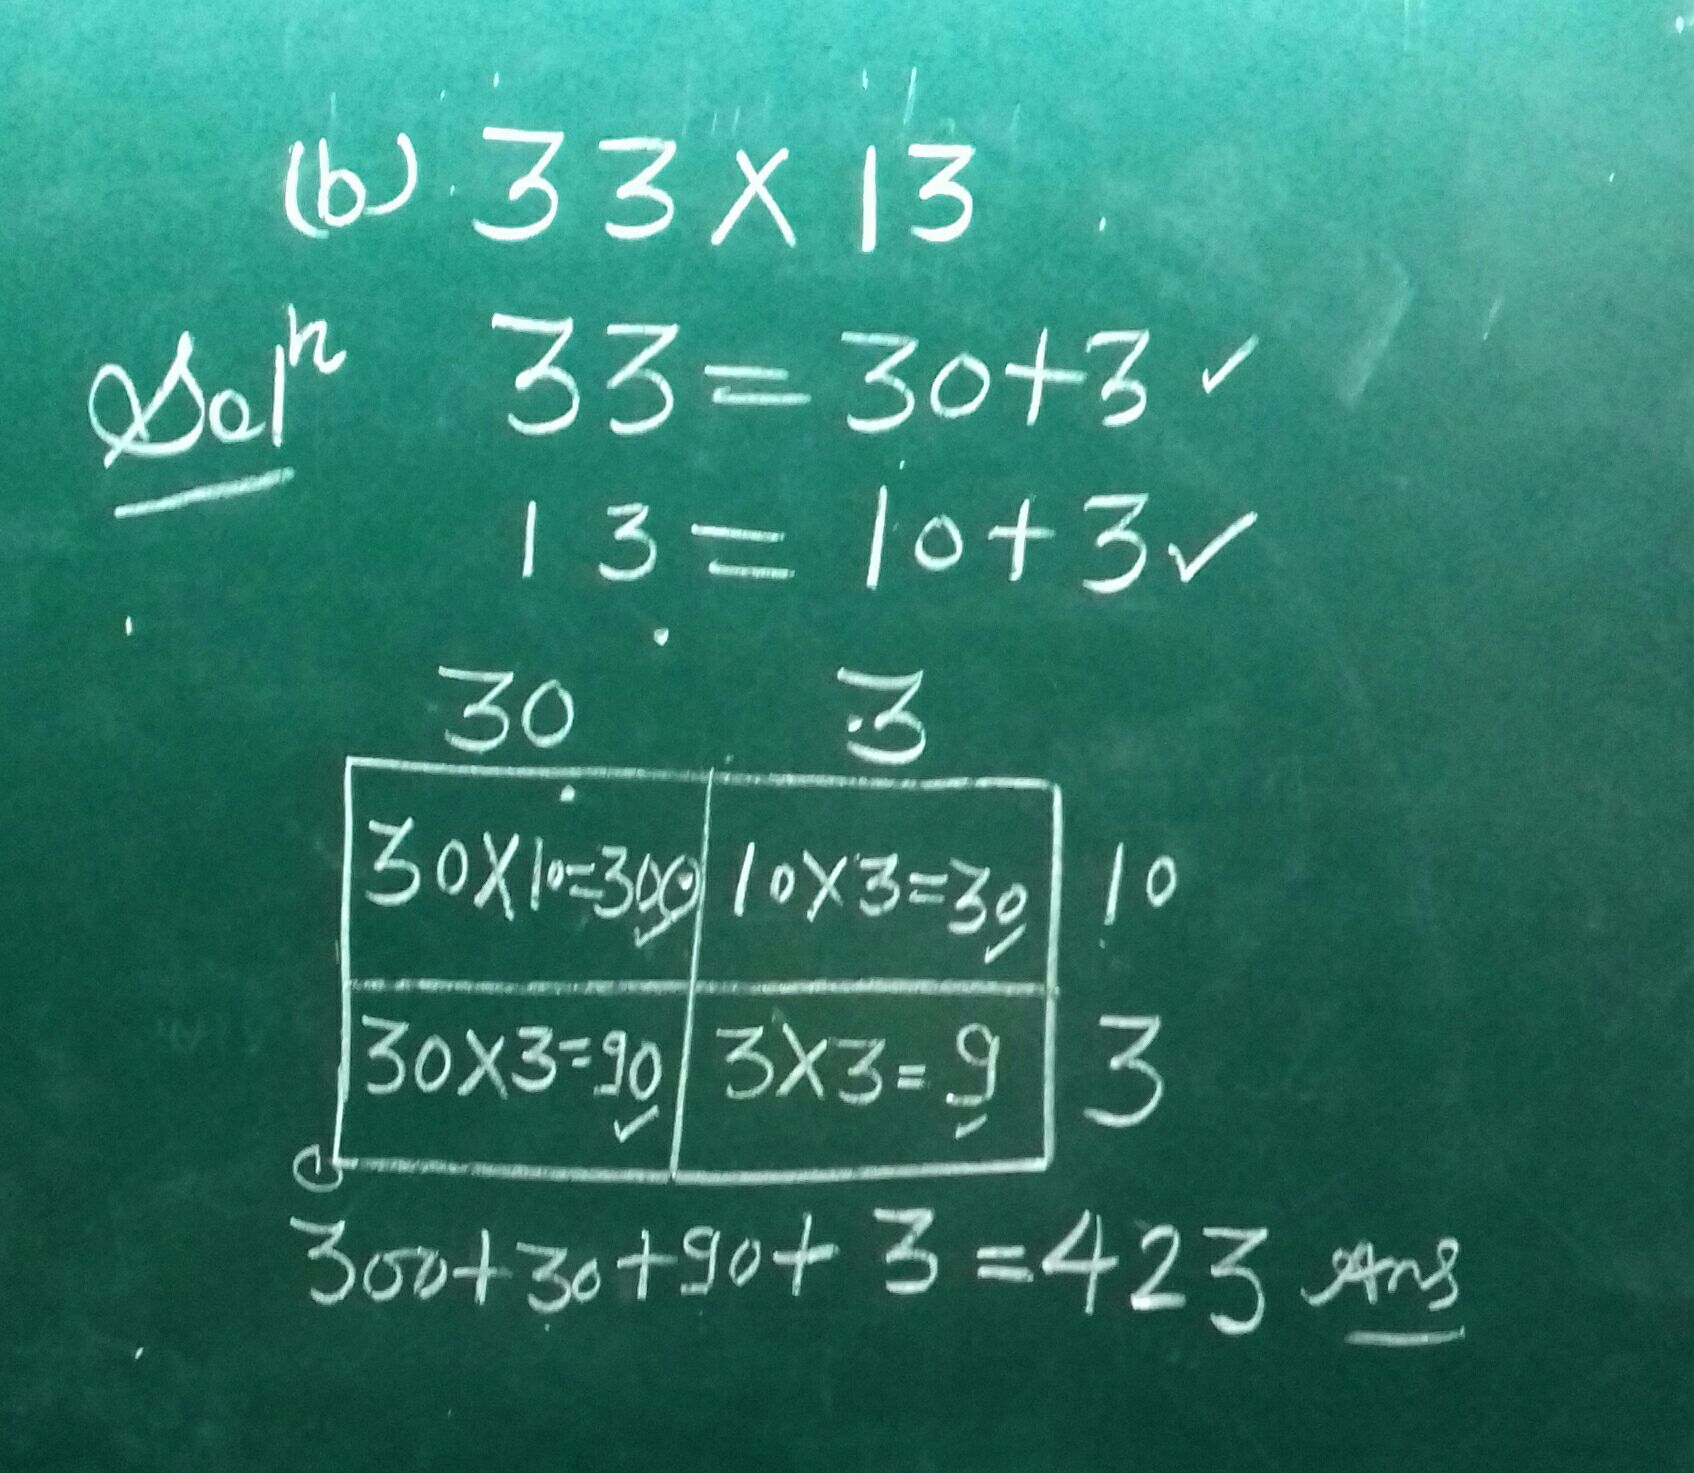 (b) 33 X 13
Solⁿ 33 = 30+3 ✓
13 = 10+3 ✓
30 3
30X10=300 ✓ 10X3=30 ✓ 10
30X3=90 ✓ 3X3=9 ✓ 3
300+30+90+3=423 Ans